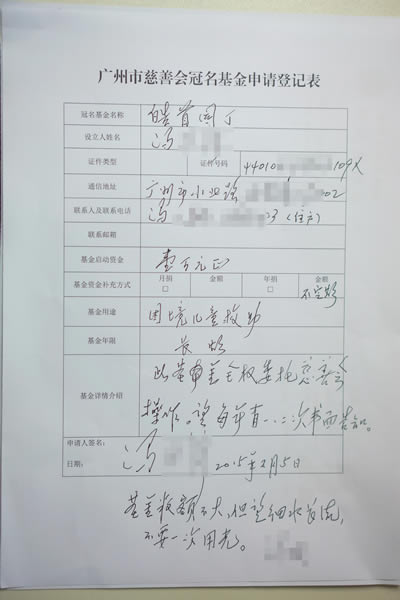 广州市慈善会冠名基金申请登记表
冠名基金名称 皓首园丁
设立人姓名 冯
证件类型 证件号码 44010 109X
通信地址 广州市小北路 02
联系人及联系电话 冯 23 (住宅)
联系邮箱
基金启动资金 壹万元正
基金资金补充方式 月捐 □ 金额 年捐 □ 金额 不定期
基金用途 困境儿童救助
基金年限 长期
基金详情介绍 此基金全权委托慈善会
操作。望每年有一、二次书面告知。
申请人签名: 冯
日期: 2015年2月5日
基金数额不大,但望细水长流,
不要一次用光。